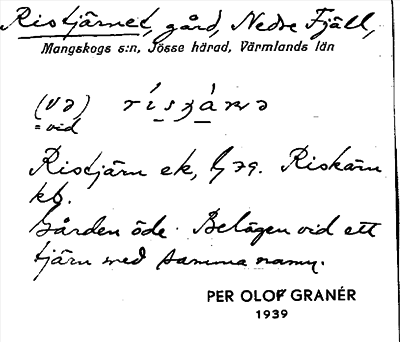 Ristjärnet, gård, Nedre Fjäll,
Mangskogs s:n, Jösse härad, Värmlands län
(və)
= vid
Ristjärn ek, bl 79. Riskärn
kb.
Gården öde. Belägen vid ett
tjärn med samma namn.
PER OLOF GRANÉR
1939